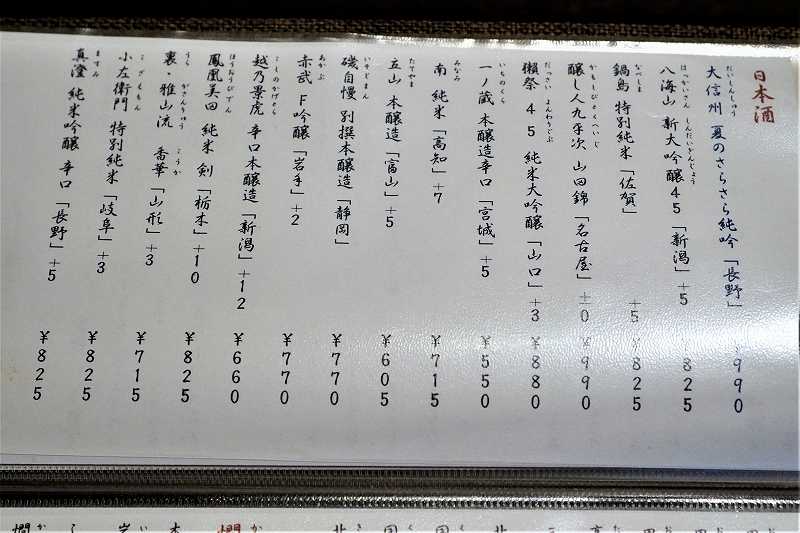 日本酒
大信州 夏のさらさら純吟「長野」 ¥990
だいしんしゅう
八海山 新大吟醸45「新潟」+5 ¥825
はっかいさん しんだいぎんじょう
鍋島 特別純米「佐賀」 +5 ¥825
なべしま
醸し人九平次 山田錦「名古屋」±0 ¥990
かもしびとくへいじ
獺祭 45 純米大吟醸「山口」+3 ¥880
だっさい よんわりごぶ
一ノ蔵 本醸造辛口「宮城」+5 ¥550
いちのくら
南 純米「高知」+7 ¥715
みなみ
立山 本醸造「富山」+5 ¥605
たてやま
磯自慢 別撰本醸造「静岡」 ¥770
いそじまん
赤武 F吟醸「岩手」+2 ¥770
あかぶ
越乃景虎 辛口本醸造「新潟」+12 ¥660
こしのかげとら
鳳凰美田 純米 剣「栃木」+10 ¥825
ほうおうびでん
裏・雅山流 香華「山形」+3 ¥715
うら がさんりゅう こうか
小左衛門 特別純米「岐阜」+3 ¥825
こざえもん
真澄 純米吟醸 辛口「長野」+5 ¥825
ますみ